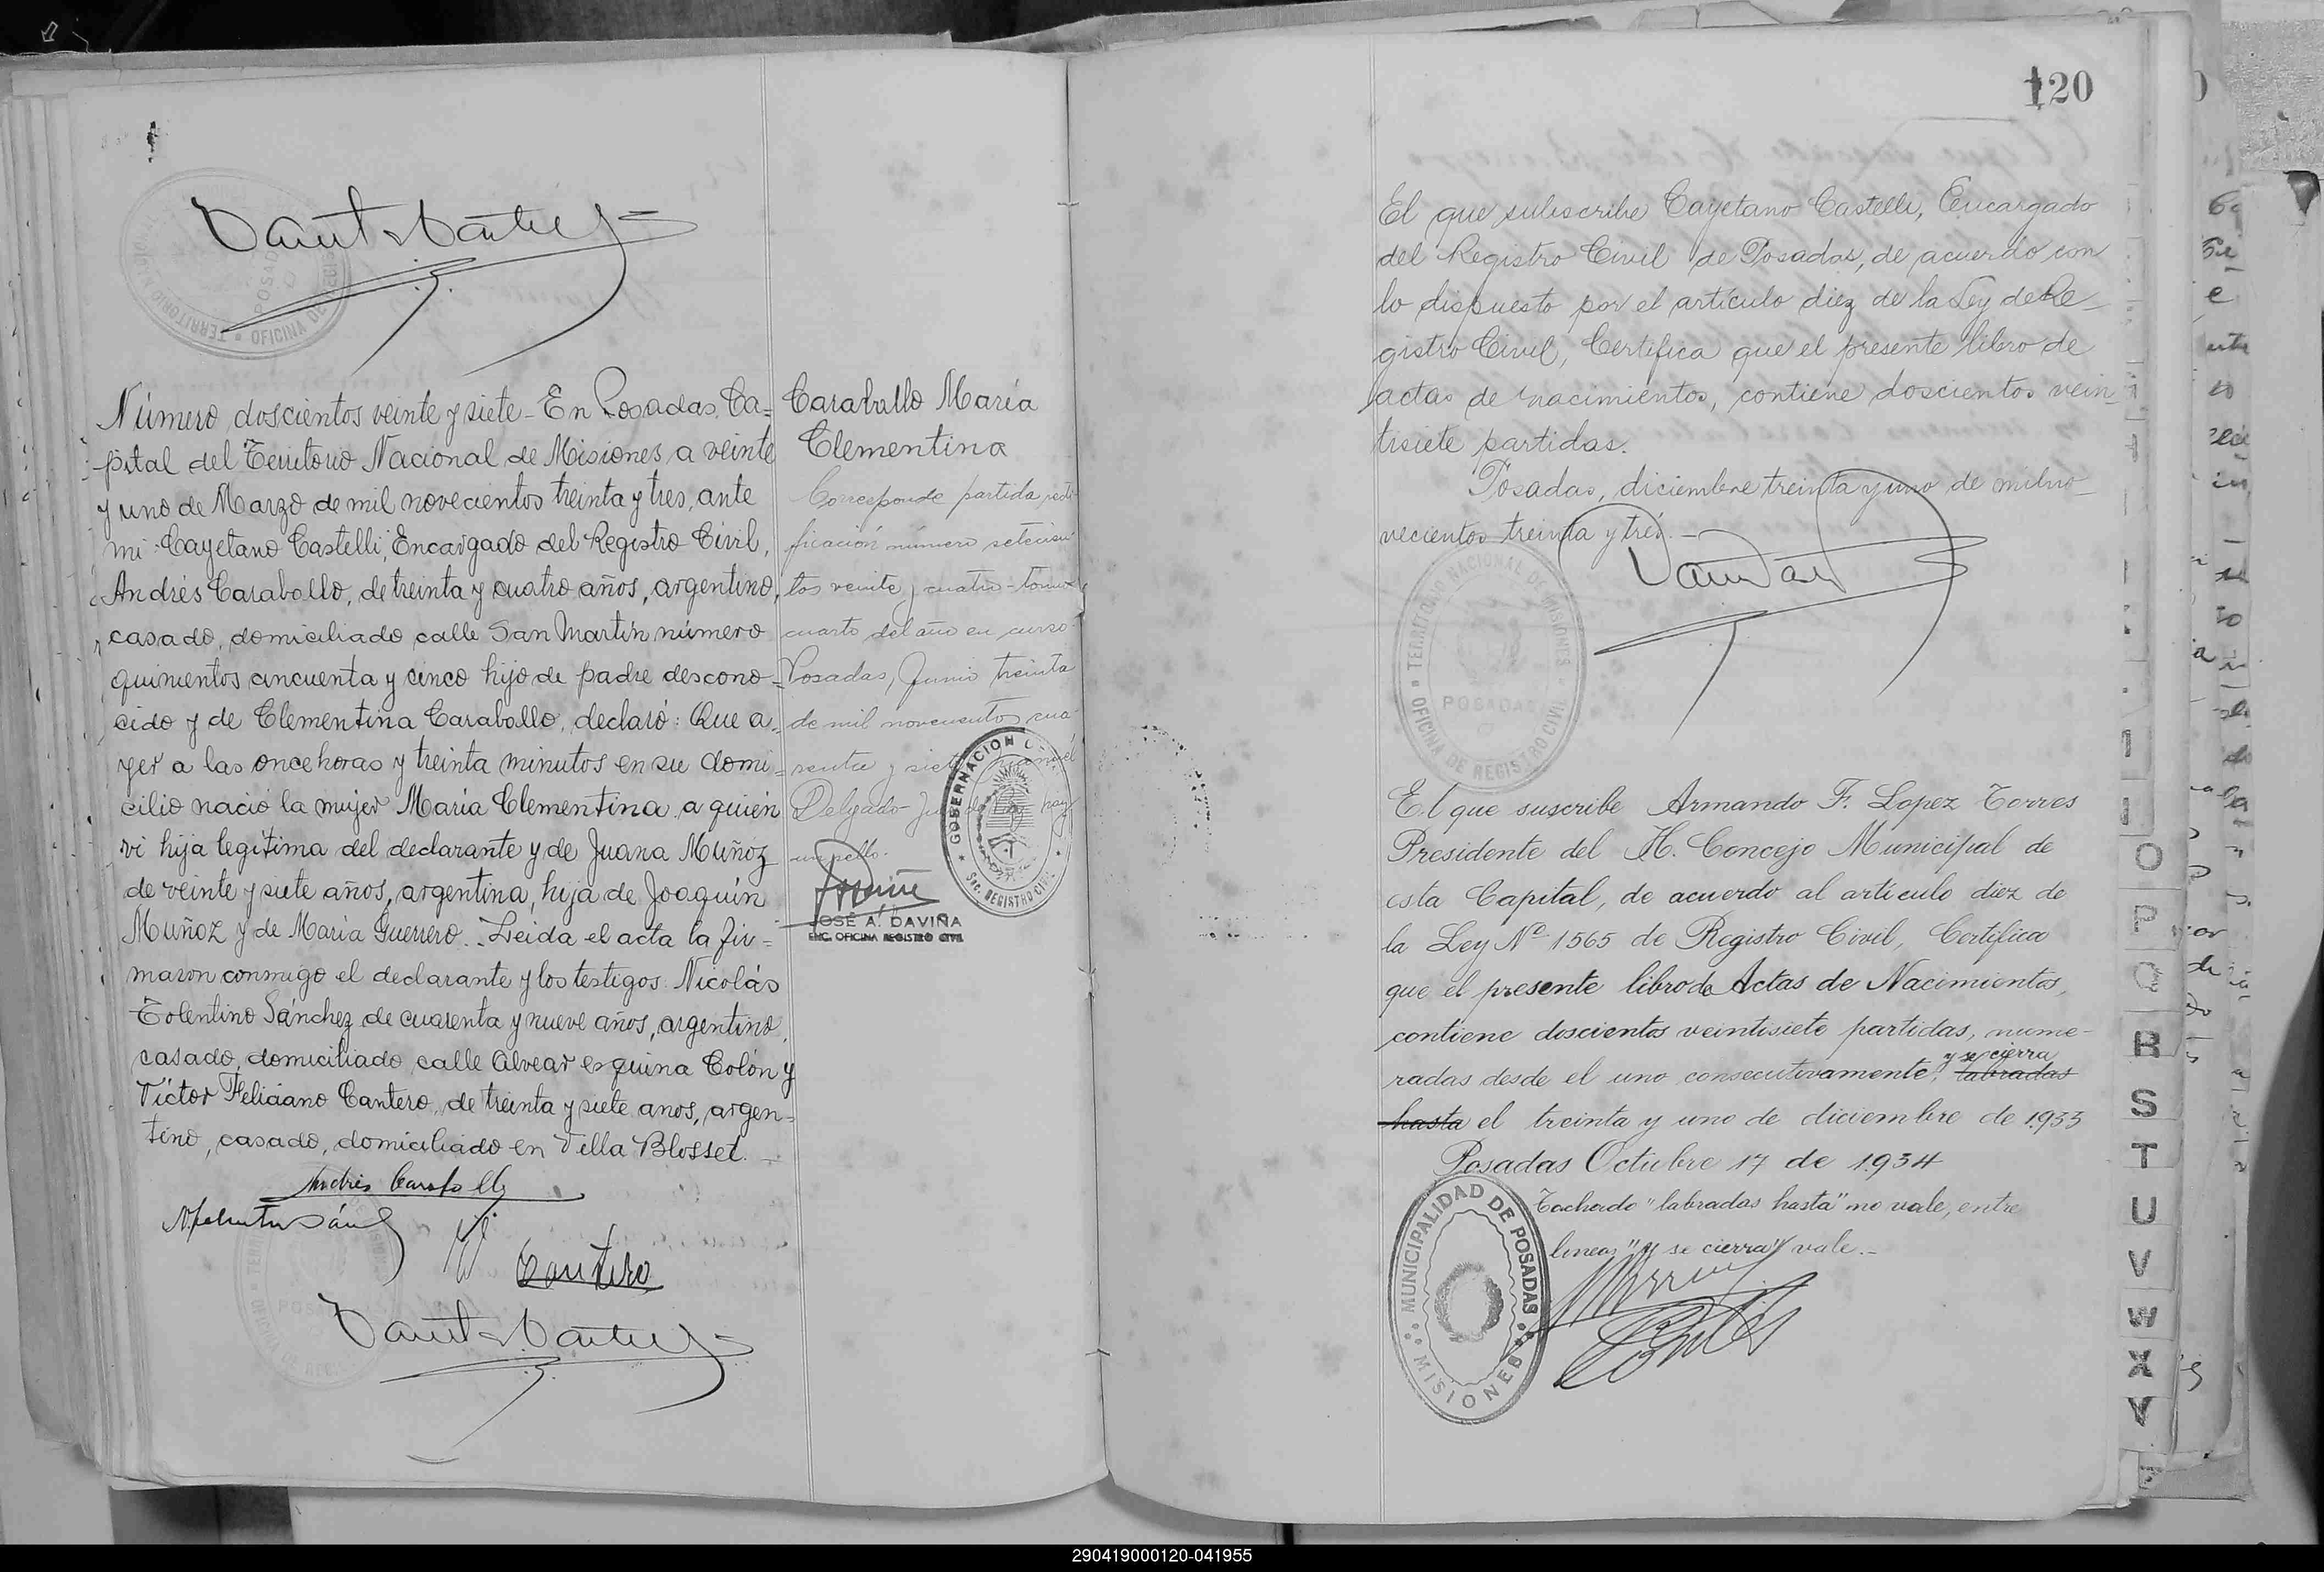 Número doscientos veinte y siete - En Posadas, Ca=
pital del Territorio Nacional de Misiones a veinte
y uno de Marzo de mil novecientos treinta y tres, ante
mi Cayetano Castelli, Encargado del Registro Civil,
Andrés Caraballo, de treinta y cuatro años, argentino,
casado, domiciliado calle San Martín número
quinientos cincuenta y cinco hijo de padre descono=
cido y de Clementina Caraballo, declaró: Que a=
yer a las once horas y treinta minutos en su domi=
cilio nació la mujer María Clementina a quién
vi hija legítima del declarante y de Juana Muñoz
de veinte y siete años, argentina, hija de Joaquín
Muñoz y de María Guerrero. Leida el acta la fir=
maron conmigo el declarante y los testigos: Nicolás
Tolentino Sánchez de cuarenta y nueve años, argentino,
casado, domiciliado calle Alvear esquina Colón y
Víctor Feliciano Cantero, de treinta y siete anos, argen=
tino, casado, domiciliado en Villa Blosset. -
Andrés Caraballo
Cantero
Caraballo María
Clementina
Corresponde partida recti
ficación número setecien
tos veinte y cuatro - tomo
cuarto del año en curso
Posadas, Junio treinta
de mil novecientos cua
renta y siete
Delgado hay
un sello.
JOSÉ A. DAVIÑA
ENC. OFICINA REGISTRO CIVIL
GOBERNACION
SEC. REGISTRO CIVIL
120
El que subscribe Cayetano Castelli, Encargado
del Registro Civil de Posadas, de acuerdo con
lo dispuesto por el artículo diez de la Ley de Re-
gistro Civil, Certifica que el presente libro de
actas de nacimientos, contiene doscientos vein-
tisiete partidas.
Posadas, diciembre treinta y uno de mil no-
vecientos treinta y tres. -
TERRITORIO NACIONAL DE MISIONES
POSADAS
OFICINA DE REGISTRO CIVIL
El que suscribe Armando F. Lopez Torres
Presidente del H. Concejo Municipal de
esta Capital, de acuerdo al artículo diez de
la Ley Nº 1565 de Registro Civil, Certifica
que el presente libro de Actas de Nacimientos,
contiene doscientos veintisiete partidas, nume-
radas desde el uno consecutivamente, y se cierra labradas
hasta el treinta y uno de diciembre de 1933
Posadas Octubre 17 de 1.934
Tachado "labradas hasta" no vale, entre
lineas "y se cierra" vale. -
MUNICIPALIDAD DE POSADAS
MISIONES
I
I
O
P
Q
B
S
T
U
V
W
X
Y
290419000120-041955